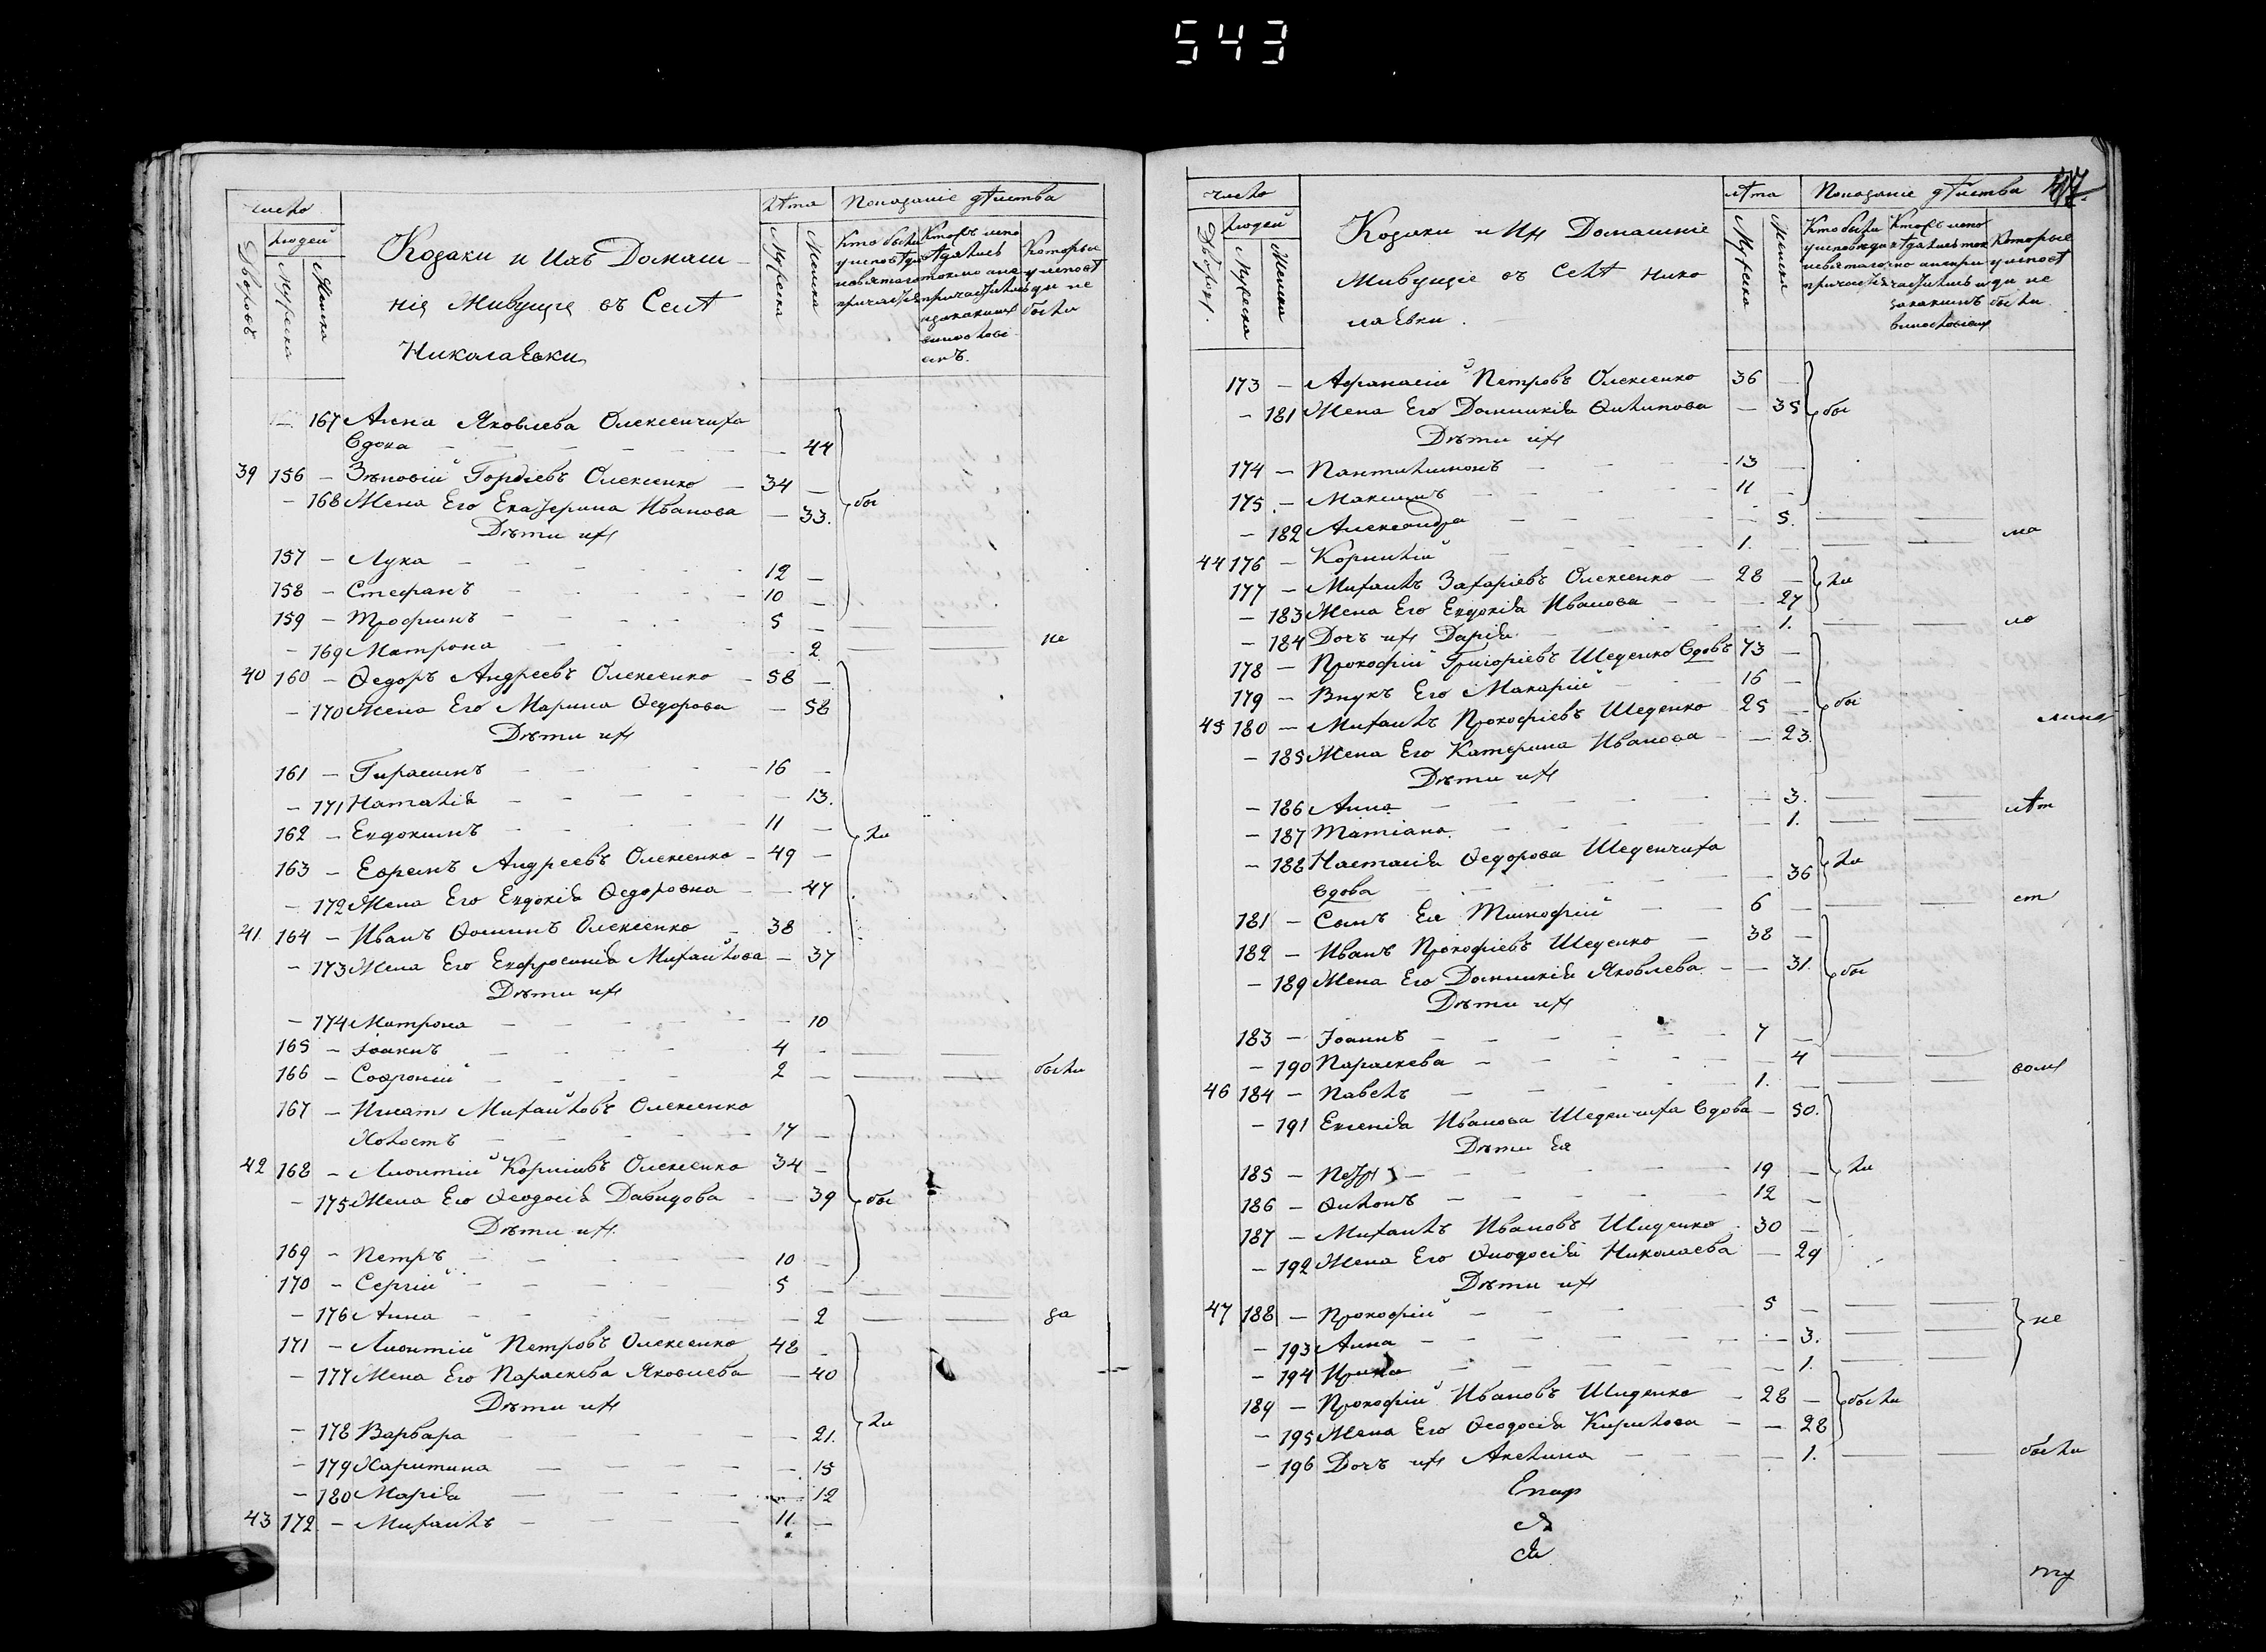 543
число
Дворовъ
людей
Мужеска
Женска
Козаки и Ихъ Домаш
нія Живуще въ Селѣ
Николаевки
лѣта
Мужеска
Женска
Показаніе дѣйства
Которые
у исповѣ
ди не
были
167 Анна Яковлева Олексенчиха
Вдова 44
39 156 – Зѣновій Гордѣевъ Олексенко – 34 –
– 168 Жена Его Екатерина Иванова – 33. бы
Дѣти ихъ
157 – Лука 12 –
158 – Стефанъ 10 –
159 – Трофимъ 5 –
– 169 Матрона 2 не
40 160 – Ѳедоръ Андреевъ Олексенко – 58 –
– 170 Жена Его Марина Ѳедорова – 58
Дѣти ихъ
161 – Гирасимъ 16 –
– 171 Наталія – 13.
162 – Евдокимъ 11 – ли
163 – Ефремъ Андреевъ Олексенко – 49 –
– 172 Жена Его Евдокія Ѳедоровна – 47
41 164 – Иванъ Ѳоминъ Олексенко 38
– 173 Жена Его Евфросинія Михайлова – 37
Дѣти ихъ
– 174 Матрона – 10
165 – Іоакимъ 4 –
166 – Софроній 2 – были
167 – Игнатъ Михайловъ Олексенко
Холостъ 17 –
42 168 – Лионтій Корніевъ Олексенко 34 –
– 175 Жена Его Ѳеодосія Давидова – 39 бы
Дѣти ихъ
169 – Петръ 10 –
170 – Сергій 5 –
– 176 Анна – 2 за
171 – Лионтій Петровъ Олексенко 48 –
– 177 Жена Его Параскева Яковлева – 40
Дѣти ихъ
– 178 Варвара – 21. ли
– 179 Харитина – 15
– 180 Марія – 12
43 172 – Михаилъ 11. –
число
Дворовъ
людей
Мужеска
Женска
Козаки и Ихъ Домашніе
Живущіе въ Селѣ Нико
лаевки.
лѣта
Мужеска
Женска
Показаніе дѣйства
Которые
у исповѣ
ди не
были
173 – Афанасій Петровъ Олексенко 36 –
– 181 Жена Его Домникія Филипова – 35 бы
Дѣти ихъ
174 – Пантилимонъ 13 –
175 – Максимъ 11 –
– 182 Александра – 5. ма
44 176 – Корнилій 1. –
177 – Михаилъ Захаріевъ Олексенко – 28 – ли
– 183 Жена Его Евдокія Иванова – 27
– 184 Дочъ ихъ Дарія – 1. ло
178 – Прокофій Григоріевъ Шеденко Вдовъ 73 –
179 – Внукъ Его Макарій 16 –
45 180 – Михаилъ Прокофіевъ Шеденко 25 – бы
– 185 Жена Его Катерина Иванова – 23.
Дѣти ихъ
– 186 Анна – 3. лѣт
– 187 Татіана – 1.
– 188 Настасія Ѳедорова Шеденчиха
Вдова – 36 ли
181 – Сынъ Ея Тимофій 6 – ст
182 – Иванъ Прокофіевъ Шеденко – 38 –
– 189 Жена Его Домникія Яковлева – 31. бы
Дѣти ихъ
183 – Іоаннъ 7 –
– 190 Параскева – 4
46 184 – Павелъ 1. –
– 191 Евгенія Иванова Шеденчиха Вдова – 50.
Дѣти Ея
185 – Петръ 19 – ли
186 – Филонъ 12 –
187 – Михаилъ Ивановъ Шиденко 30 –
– 192 Жена Его Ѳиодосія Николаева – 29
Дѣти ихъ
47 188 – Прокофій 5 – не
– 193 Анна – 3.
– 194 Ирина – 1.
189 – Прокофій Ивановъ Шиденко – 28 – были
– 195 Жена Его Ѳеодосія Кирилова – 28
– 196 Дочъ ихъ Акелина – 1. были
ту